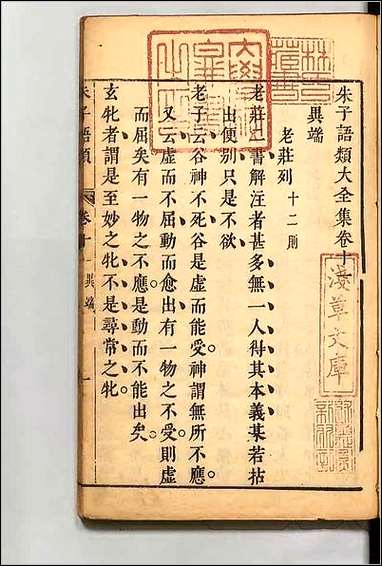 朱子語類大全集卷十
異端
老莊列 十二則
老莊二書解注者甚多無一人得其本義某若拈
出便别只是不欲
老子云谷神不死谷是虛而能受神謂無所不應
又云虛而不屈動而愈出有一物之不受則虛
而屈矣有一物之不應是動而不能出矣
玄牝者謂是至妙之牝不是尋常之牝
朱子語類 卷十 異端 一
淺草文庫